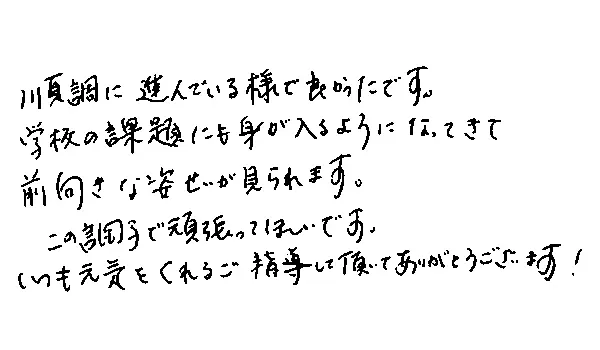 順調に進んでいる様で良かったです。
学校の課題にも身が入るようになってきて
前向きな姿せいが見られます。
この調子で頑張ってほしいです。
いつも元気をくれるご指導して頂いてありがとうございます！